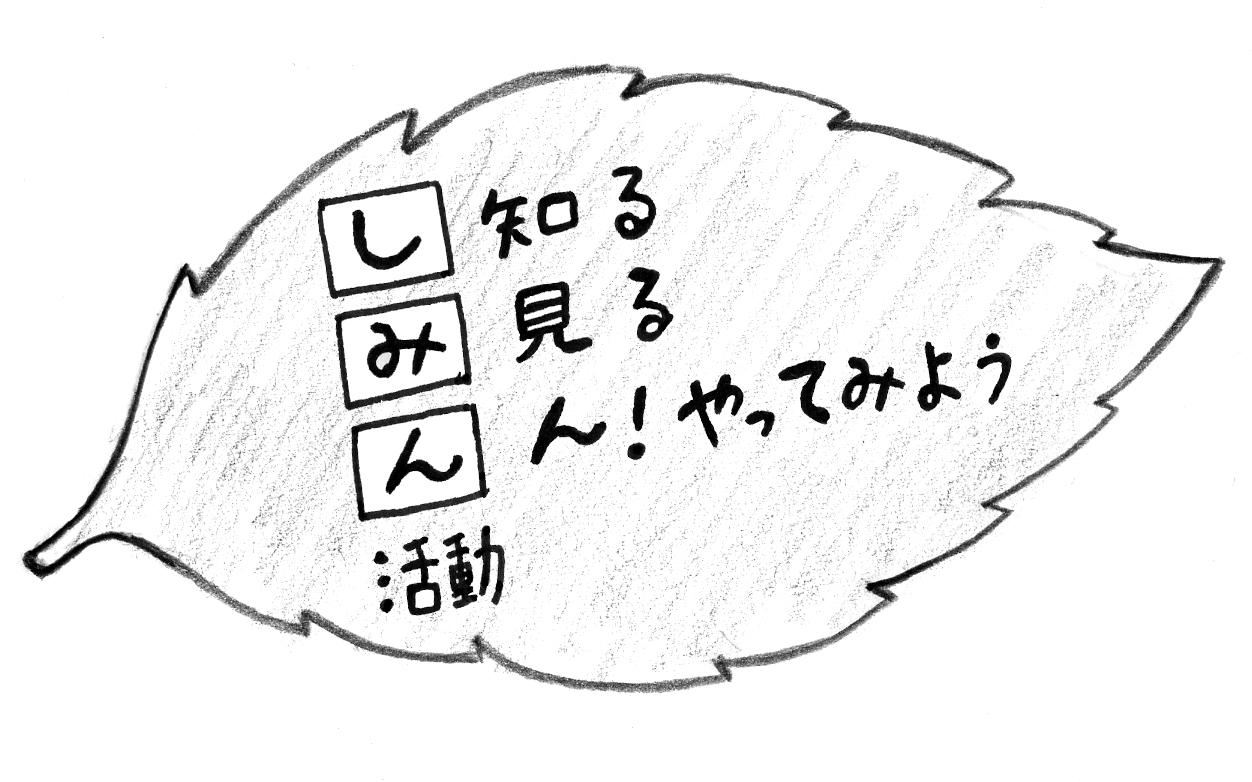 し 知る
み 見る
ん ん!やってみよう
活動